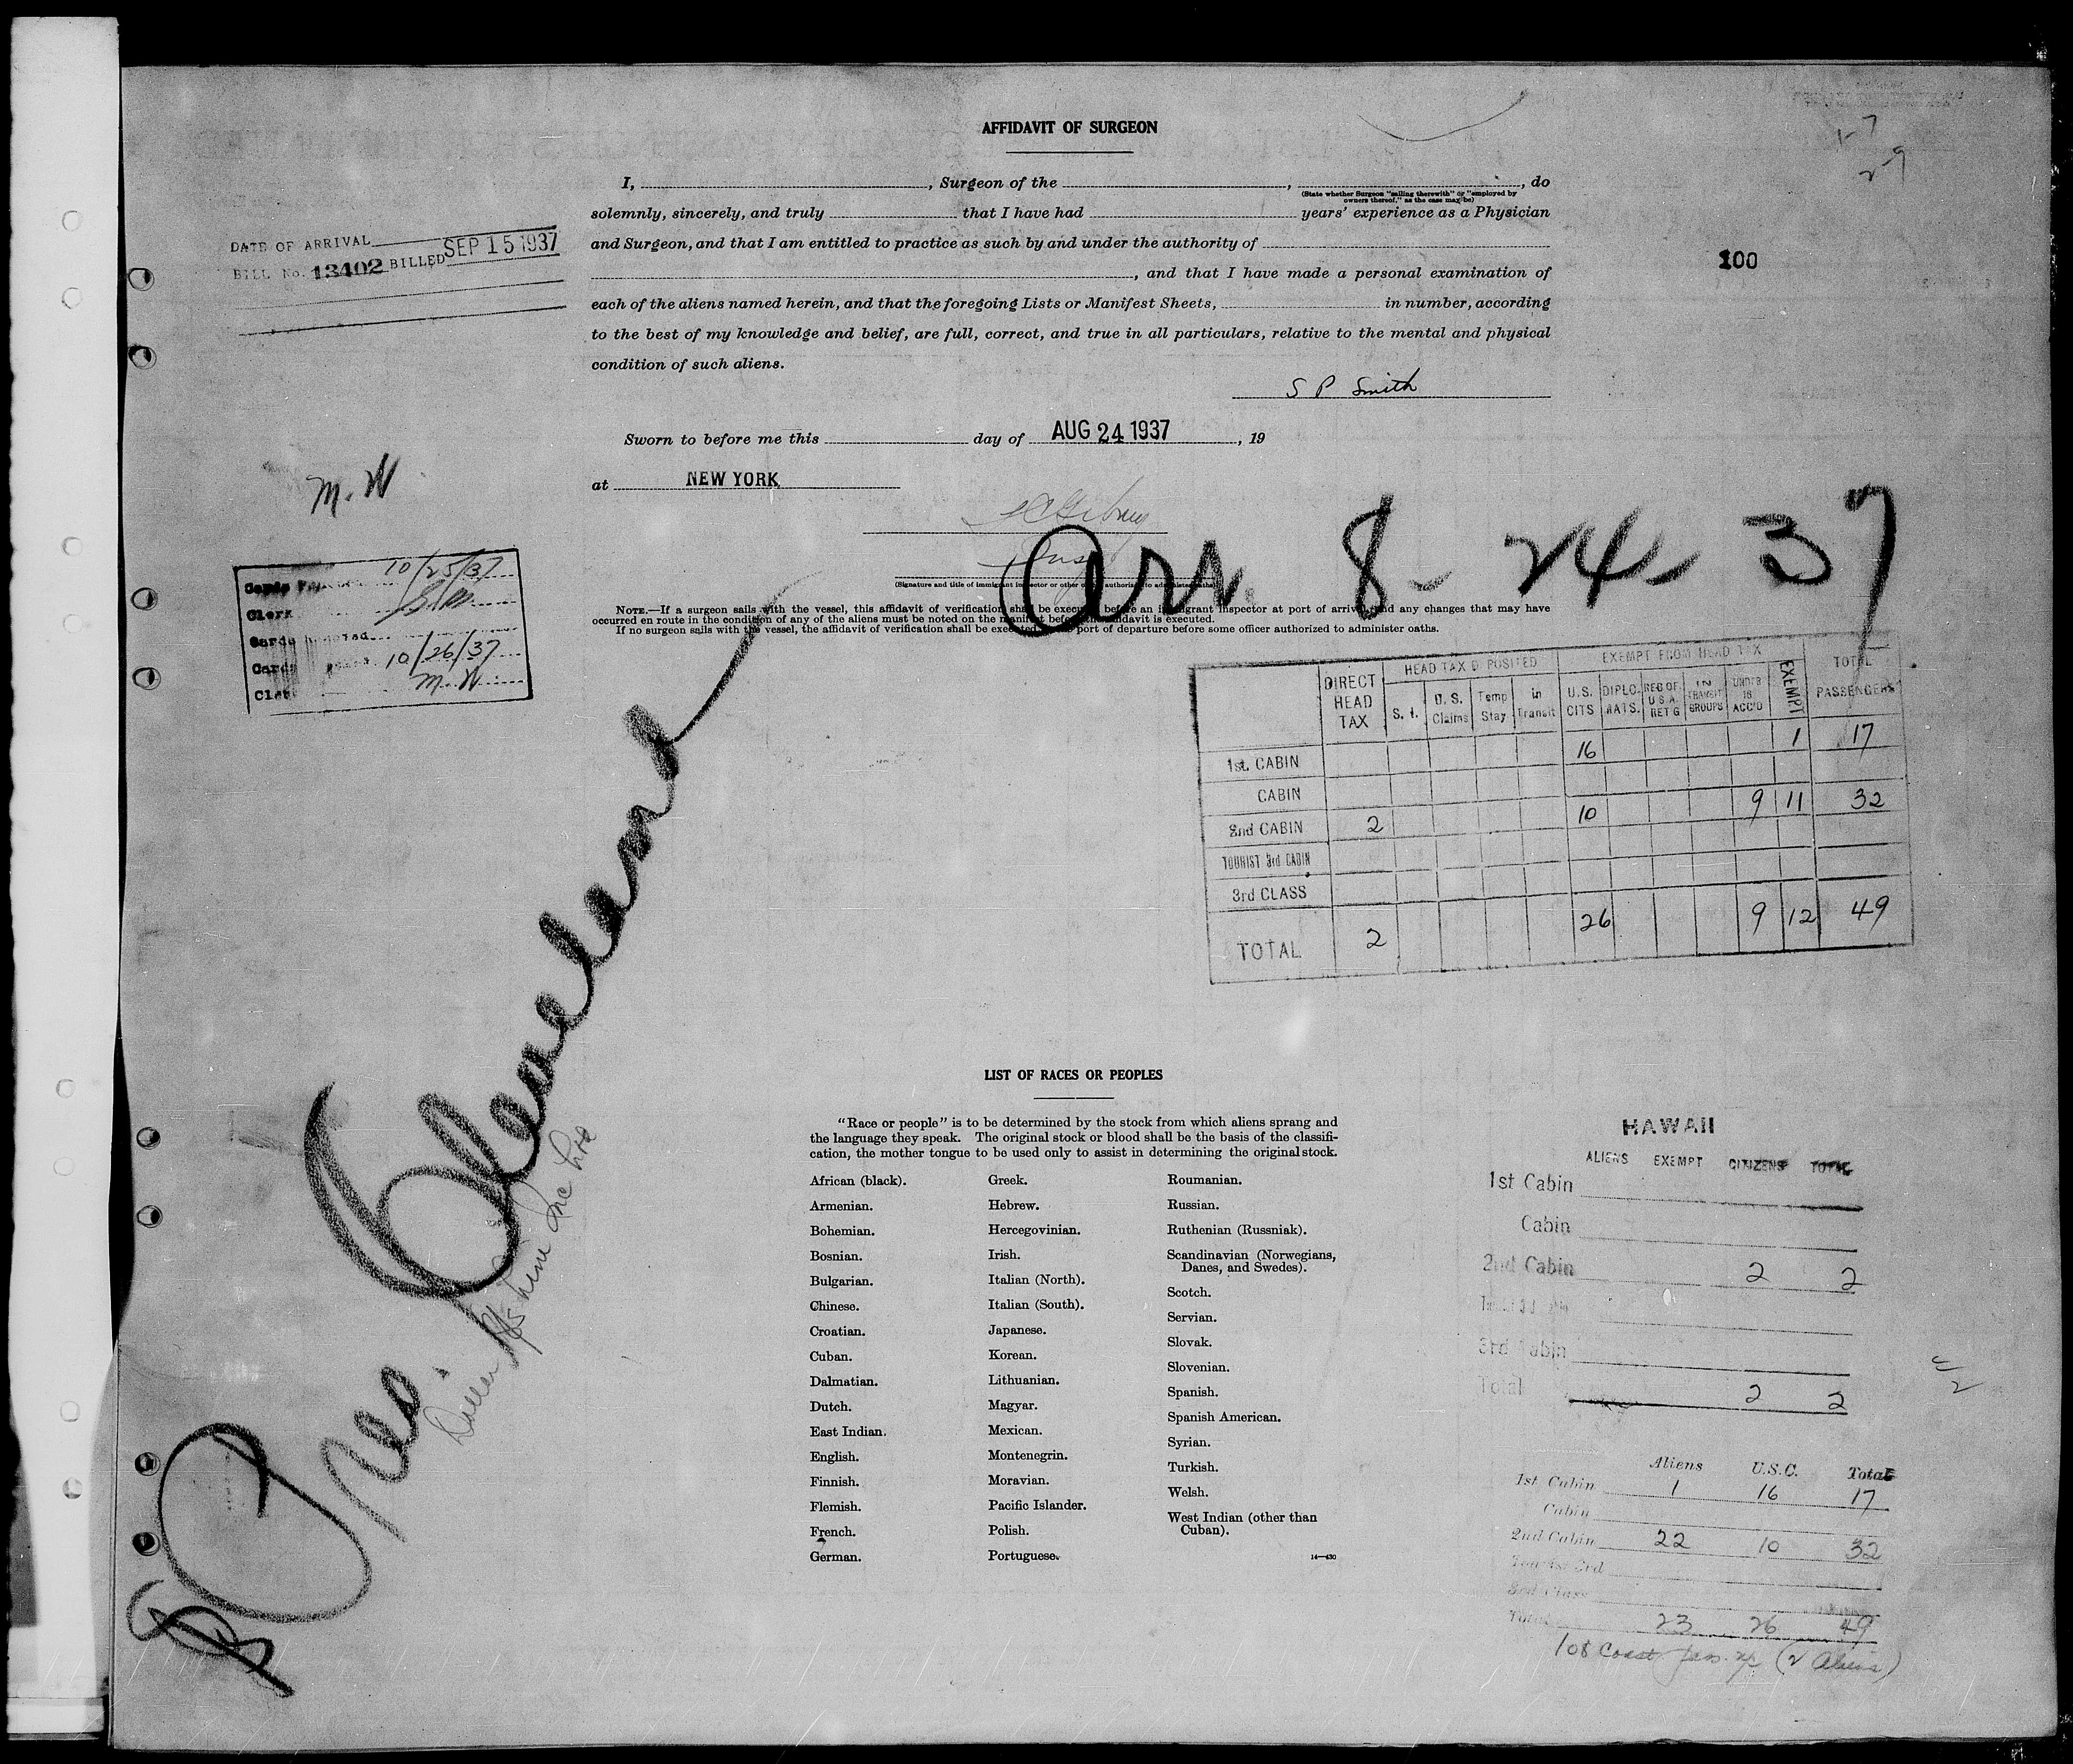 AFFIDAVIT OF SURGEON
I, , Surgeon of the , , do
(State whether Surgeon "sailing therewith" or "employed by
owners thereof," as the case may be)
solemnly, sincerely, and truly that I have had years' experience as a Physician
and Surgeon, and that I am entitled to practice as such by and under the authority of
, and that I have made a personal examination of
each of the aliens named herein, and that the foregoing Lists or Manifest Sheets, in number, according
to the best of my knowledge and belief, are full, correct, and true in all particulars, relative to the mental and physical
condition of such aliens.
S P Smith
Sworn to before me this day of AUG 24 1937, 19
at NEW YORK
(Signature and title of immigrant inspector or other officer authorized to administer oaths)
NOTE.—If a surgeon sails with the vessel, this affidavit of verification shall be executed before an immigrant inspector at port of arrival, and any changes that may have
occurred en route in the condition of any of the aliens must be noted on the manifest before the affidavit is executed.
If no surgeon sails with the vessel, the affidavit of verification shall be executed at the port of departure before some officer authorized to administer oaths.
DATE OF ARRIVAL
BILL No. 13402 BILLED SEP 15 1937
100
1-7
2-9
M. W
Cards 10/25/37
Clerk
Cards
Cards 10/26/37
Clerk M. W.
Arr. 8- 24- 37
Pres. Cleveland
Dollar SS Line Inc Ltd
DIRECT HEAD TAX
HEAD TAX DEPOSITED
S. I.
U. S. Claims
Temp Stay
in Transit
EXEMPT FROM HEAD TAX
U.S. CITS
DIPLOMATS.
RES OF U.S.A. RET'G
IN TRANSIT GROUPS
UNDER 16 ACC'D
EXEMPT
TOTAL PASSENGERS
1st. CABIN 16 1 17
CABIN
2nd CABIN 2 10 9 11 32
TOURIST 3rd CABIN
3rd CLASS
TOTAL 2 26 9 12 49
LIST OF RACES OR PEOPLES
"Race or people" is to be determined by the stock from which aliens sprang and
the language they speak. The original stock or blood shall be the basis of the classifi-
cation, the mother tongue to be used only to assist in determining the original stock.
African (black).
Armenian.
Bohemian.
Bosnian.
Bulgarian.
Chinese.
Croatian.
Cuban.
Dalmatian.
Dutch.
East Indian.
English.
Finnish.
Flemish.
French.
German.
Greek.
Hebrew.
Hercegovinian.
Irish.
Italian (North).
Italian (South).
Japanese.
Korean.
Lithuanian.
Magyar.
Mexican.
Montenegrin.
Moravian.
Pacific Islander.
Polish.
Portuguese.
Roumanian.
Russian.
Ruthenian (Russniak).
Scandinavian (Norwegians,
Danes, and Swedes).
Scotch.
Servian.
Slovak.
Slovenian.
Spanish.
Spanish American.
Syrian.
Turkish.
Welsh.
West Indian (other than
Cuban).
14—430
HAWAII
ALIENS EXEMPT CITIZENS TOTAL
1st Cabin
Cabin
2nd Cabin 2 2
3rd Cabin
Total 2 2
Aliens U.S.C. Total
1st Cabin 1 16 17
Cabin
2nd Cabin 22 10 32
Tourist 3rd
3rd Class
Total 23 26 49
108 Coast (2 Aliens)